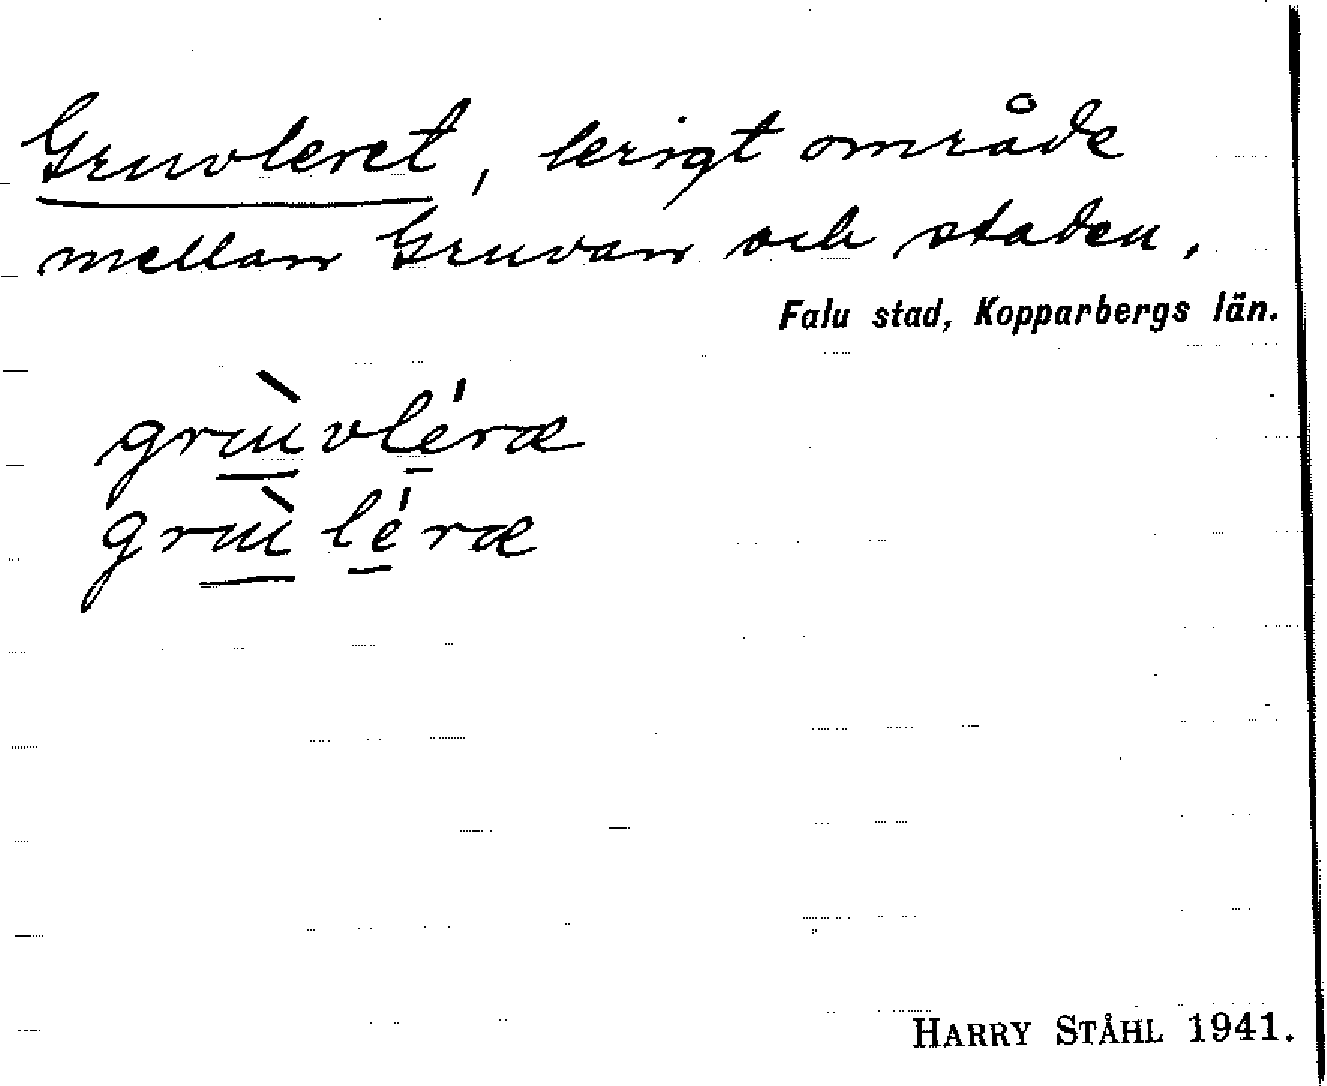 Gruvleret, lerigt område
mellan Gruvan och staden.
Falu stad, Kopparbergs län.
grùvléræ
grùléræ
HARRY STÅHL 1941.